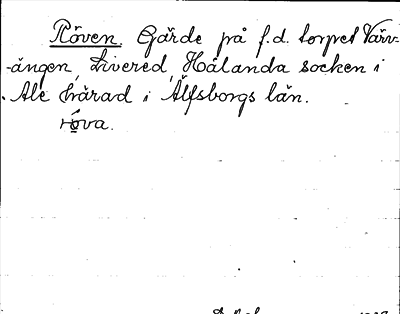 Röven. Gärde på f.d. torpet Värv-
-ängen, Livered, Hålanda socken i
Ale härad i Älfsborgs län.
röva.